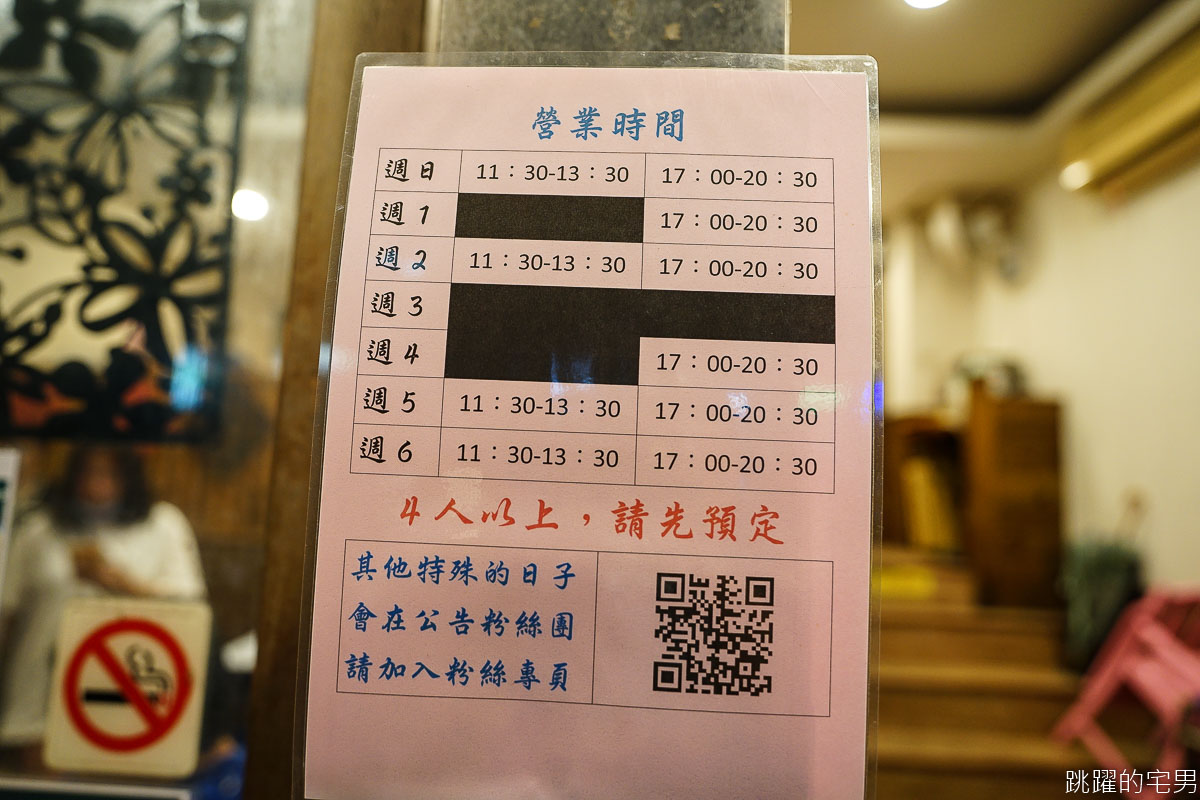 營業時間
週日 11：30-13：30 17：00-20：30
週1 17：00-20：30
週2 11：30-13：30 17：00-20：30
週3
週4 17：00-20：30
週5 11：30-13：30 17：00-20：30
週6 11：30-13：30 17：00-20：30
4人以上，請先預定
其他特殊的日子
會在公告粉絲團
請加入粉絲專頁
跳躍的宅男